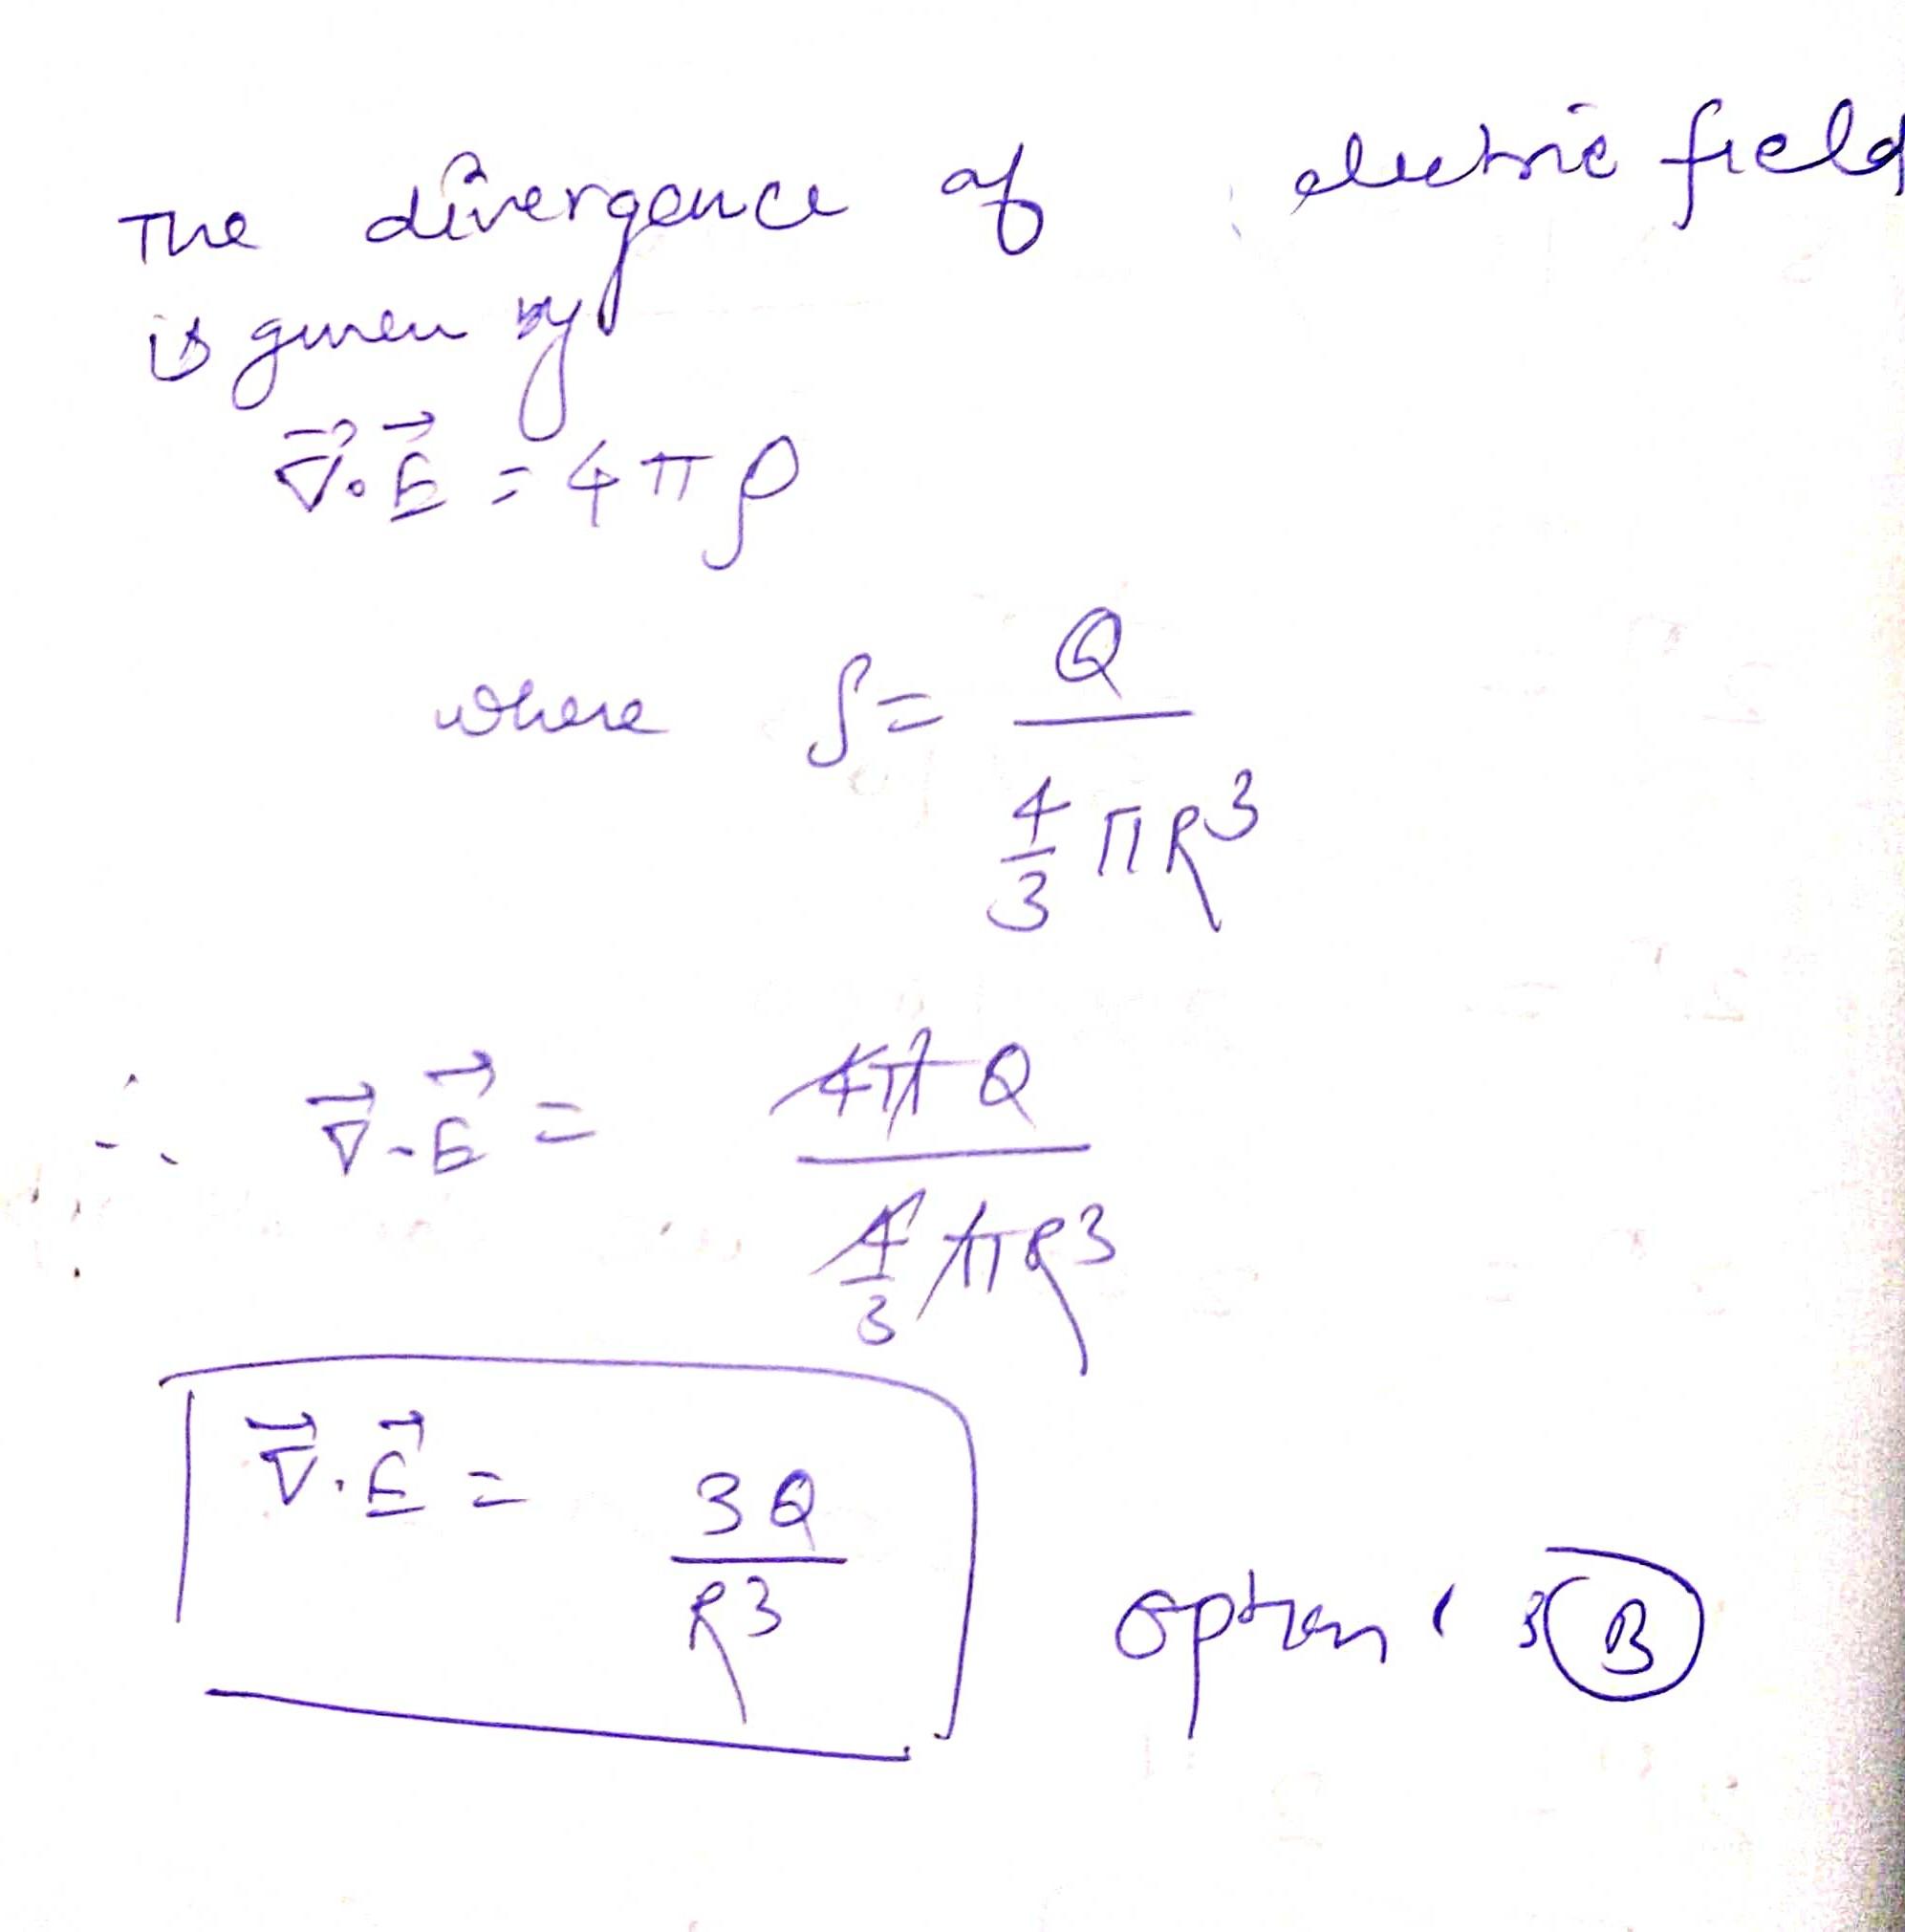 The divergence of electric field
is given by
∇⃗·E⃗ = 4πρ
where ρ = Q / (4/3 πR³)
∴ ∇⃗·E⃗ = 4πQ / (4/3 πR³)
∇⃗·E⃗ = 3Q / R³
option B